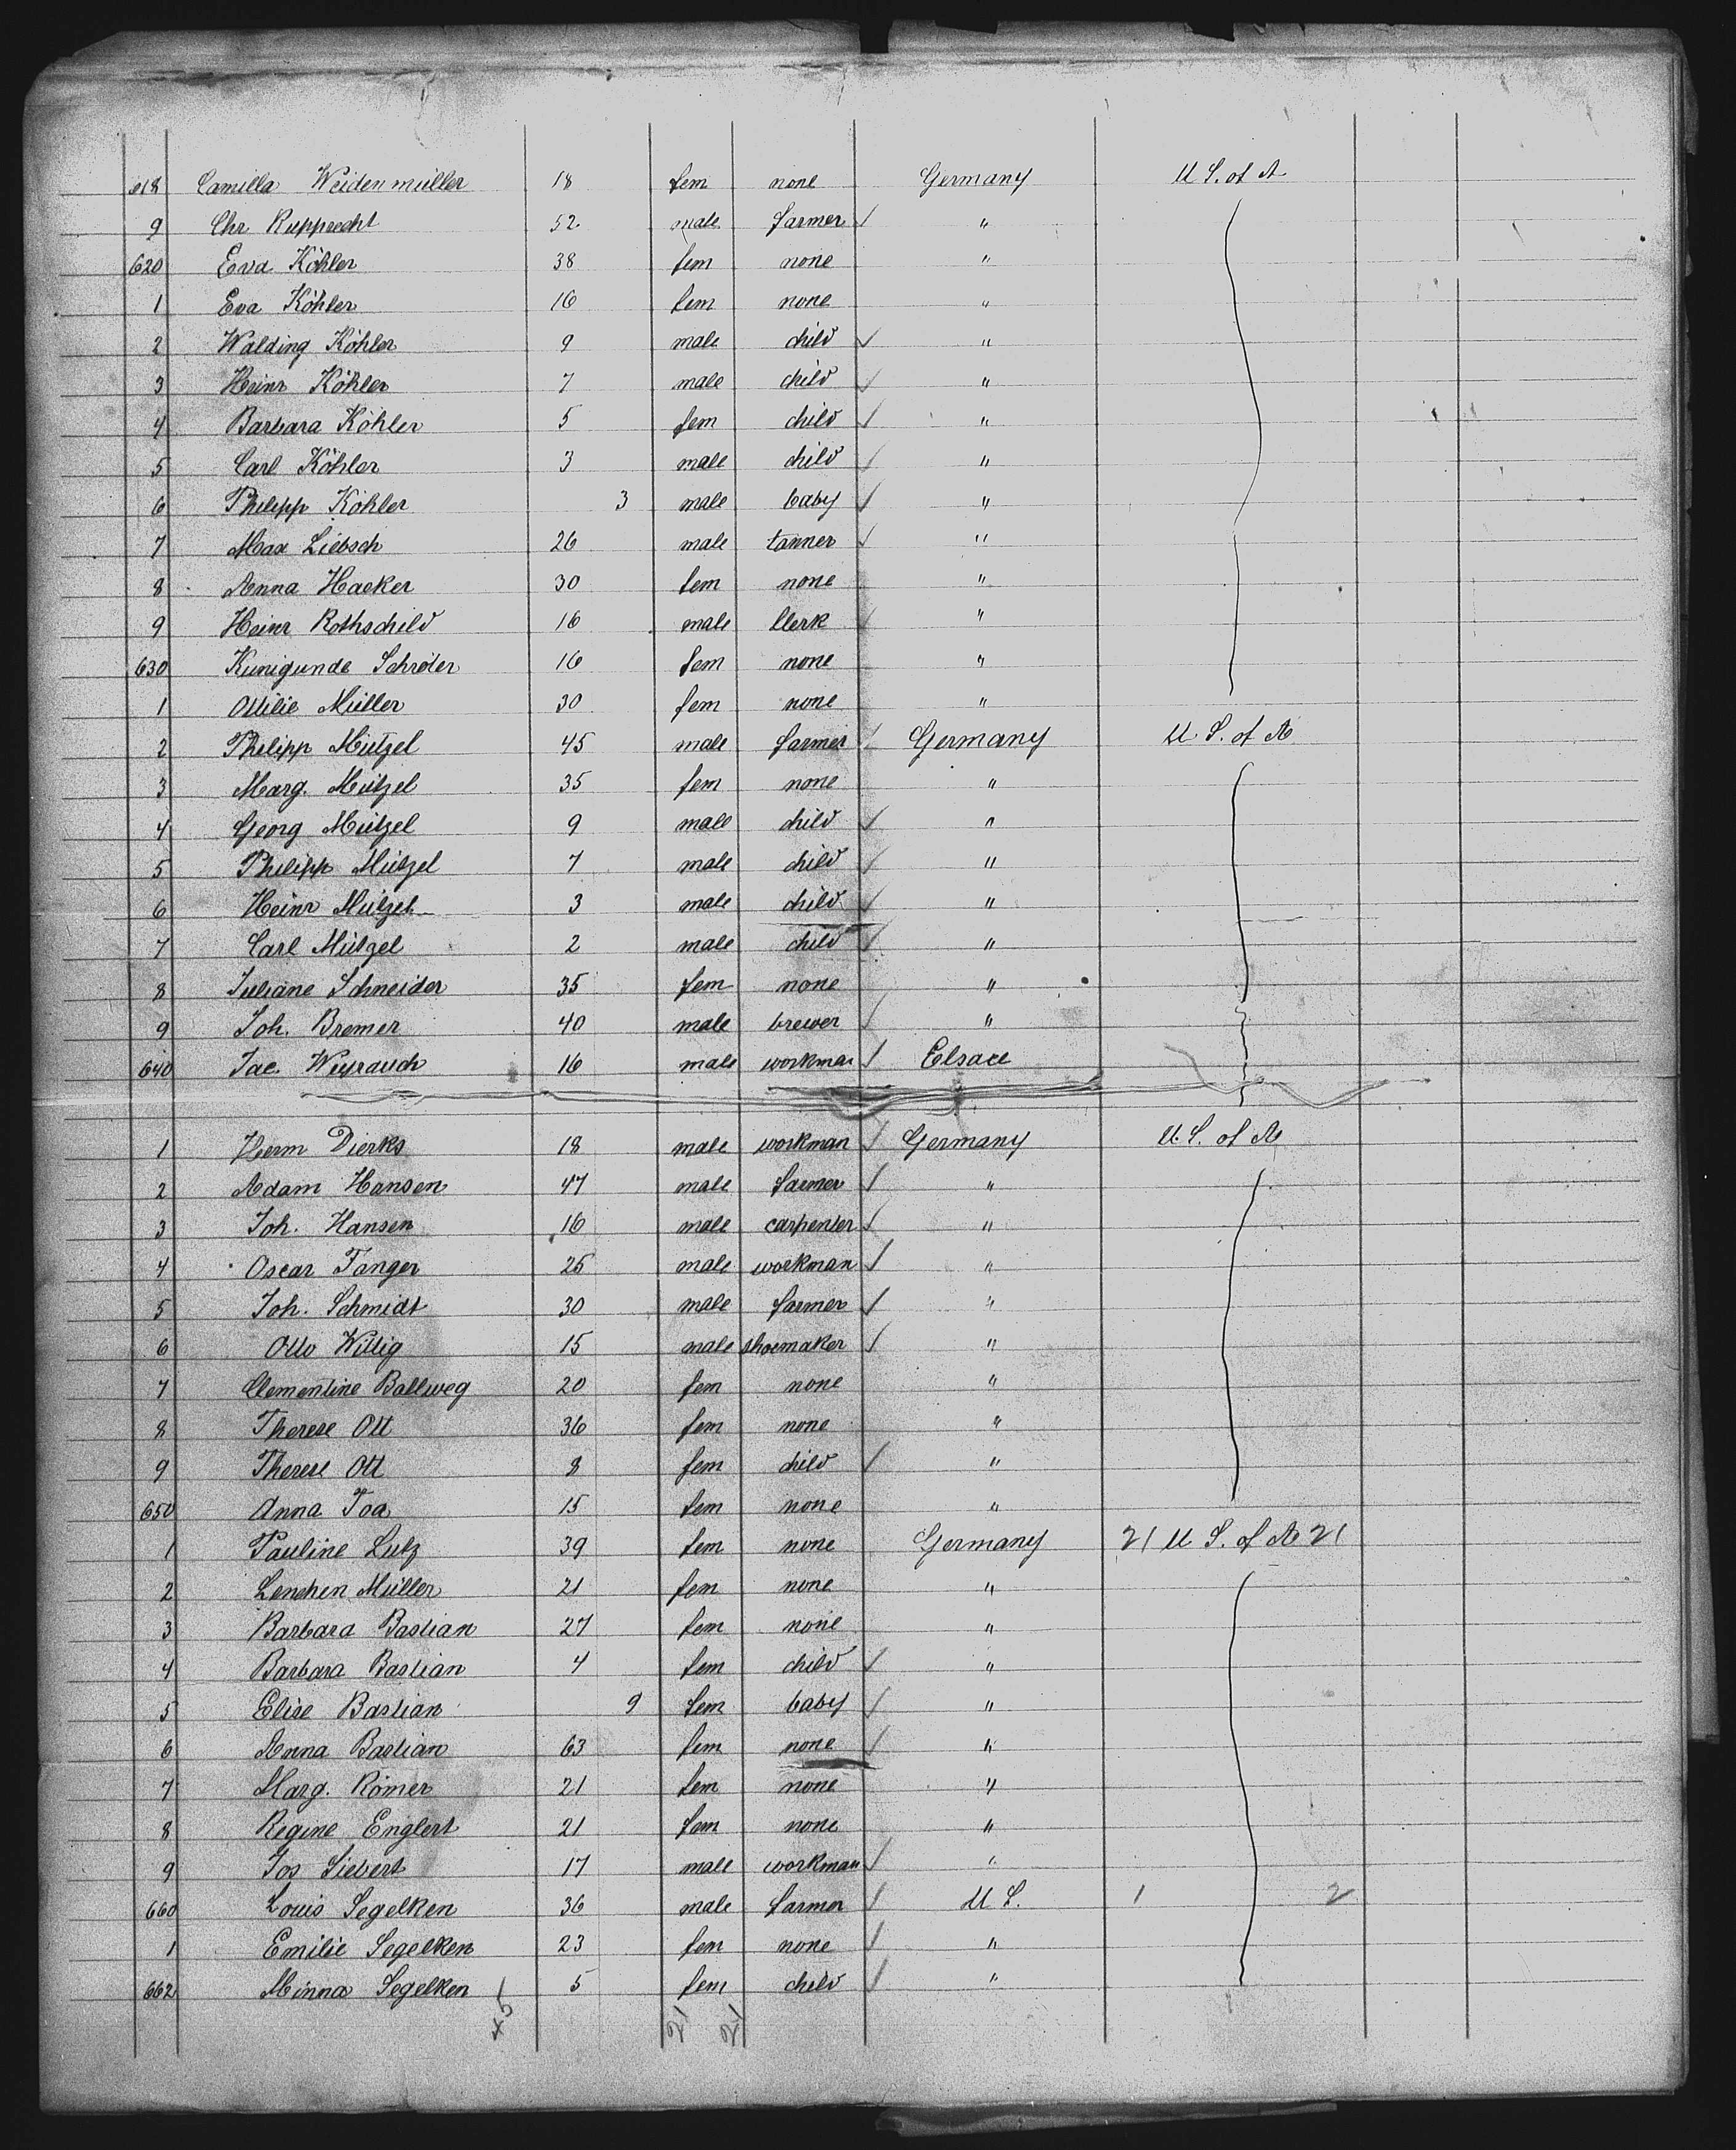 618 Camilla Weidenmüller 18 fem none Germany U S. of A
9 Chr Rupprecht 52 male farmer √ "
620 Eva Köhler 38 fem none "
1 Eva Köhler 16 fem none "
2 Walding Köhler 9 male child √ "
3 Heinr Köhler 7 male child √ "
4 Barbara Köhler 5 fem child √ "
5 Carl Köhler 3 male child √ "
6 Philipp Köhler 3 male baby √ "
7 Max Liebsch 26 male tanner √ "
8 Anna Hacker 30 fem none "
9 Heinr Rothschild 16 male Clerk √ "
630 Kunigunde Schröter 16 fem none "
1 Ottilie Müller 30 fem none "
2 Philipp Mützel 45 male farmer √ Germany U. S. of A
3 Marg. Mützel 35 fem none "
4 Georg Mützel 9 male child √ "
5 Philipp Mützel 7 male child √ "
6 Heinr Mützel 3 male child √ "
7 Carl Mützel 2 male child √ "
8 Juliane Schneider 35 fem none "
9 Joh. Bremer 40 male brewer √ "
640 Jac. Weyrauch 16 male workman √ Elsace
1 Herm Dierks 18 male workman √ Germany U. S. of A
2 Adam Hansen 47 male farmer √ "
3 Joh. Hansen 16 male carpenter √ "
4 Oscar Fanger 25 male workman √ "
5 Joh. Schmidt 30 male farmer √ "
6 Otto Wittig 15 male shoemaker √ "
7 Clementine Ballweg 20 fem none "
8 Therese Ott 36 fem none "
9 Therese Ott 8 fem child √ "
650 Anna Joa 15 fem none "
1 Pauline Lutz 39 fem none Germany 21 U S. of A 21
2 Lenchen Müller 21 fem none "
3 Barbara Bastian 27 fem none "
4 Barbara Bastian 4 fem child √ "
5 Elise Bastian 9 fem baby √ "
6 Anna Bastian 63 fem none √ "
7 Marg. Römer 21 fem none "
8 Regine Englert 21 fem none "
9 Jos Siebert 17 male workman √ "
660 Louis Segelken 36 male farmer √ U S. 1 2
1 Emilie Segelken 23 fem none √ "
662 Minna Segelken 5 fem child √ "
45 21 21